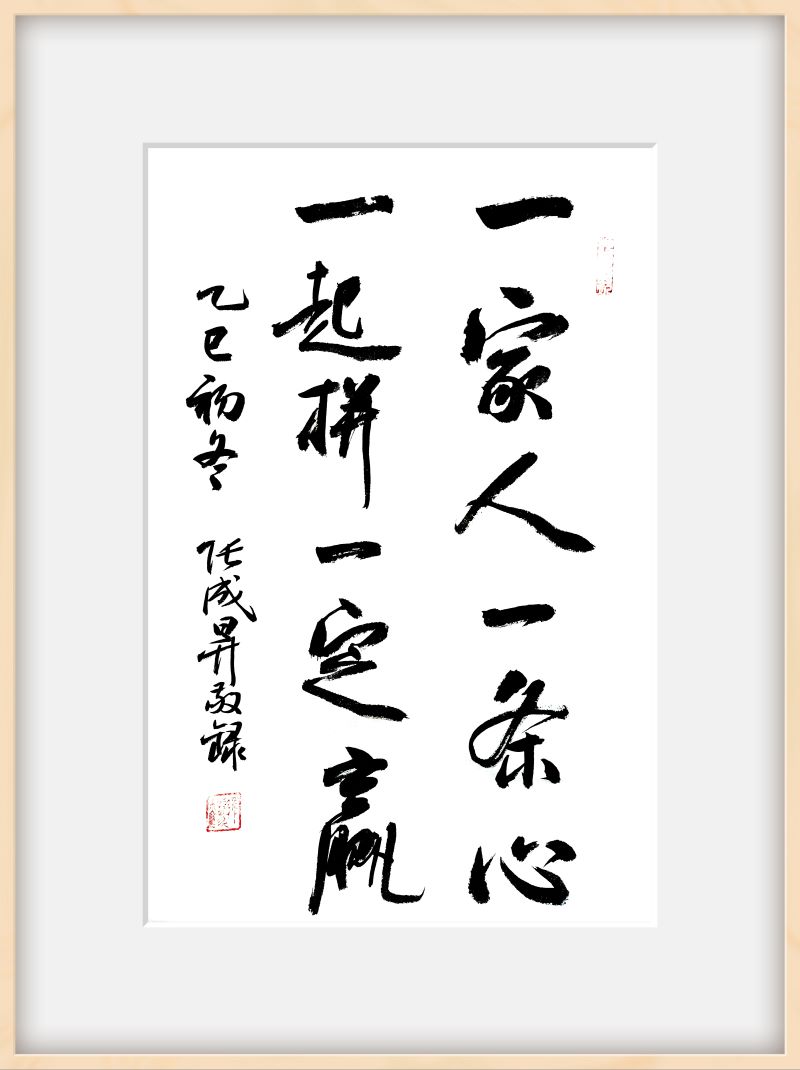 一家人一条心
一起拼一定赢
乙巳初冬 任成昇敬録